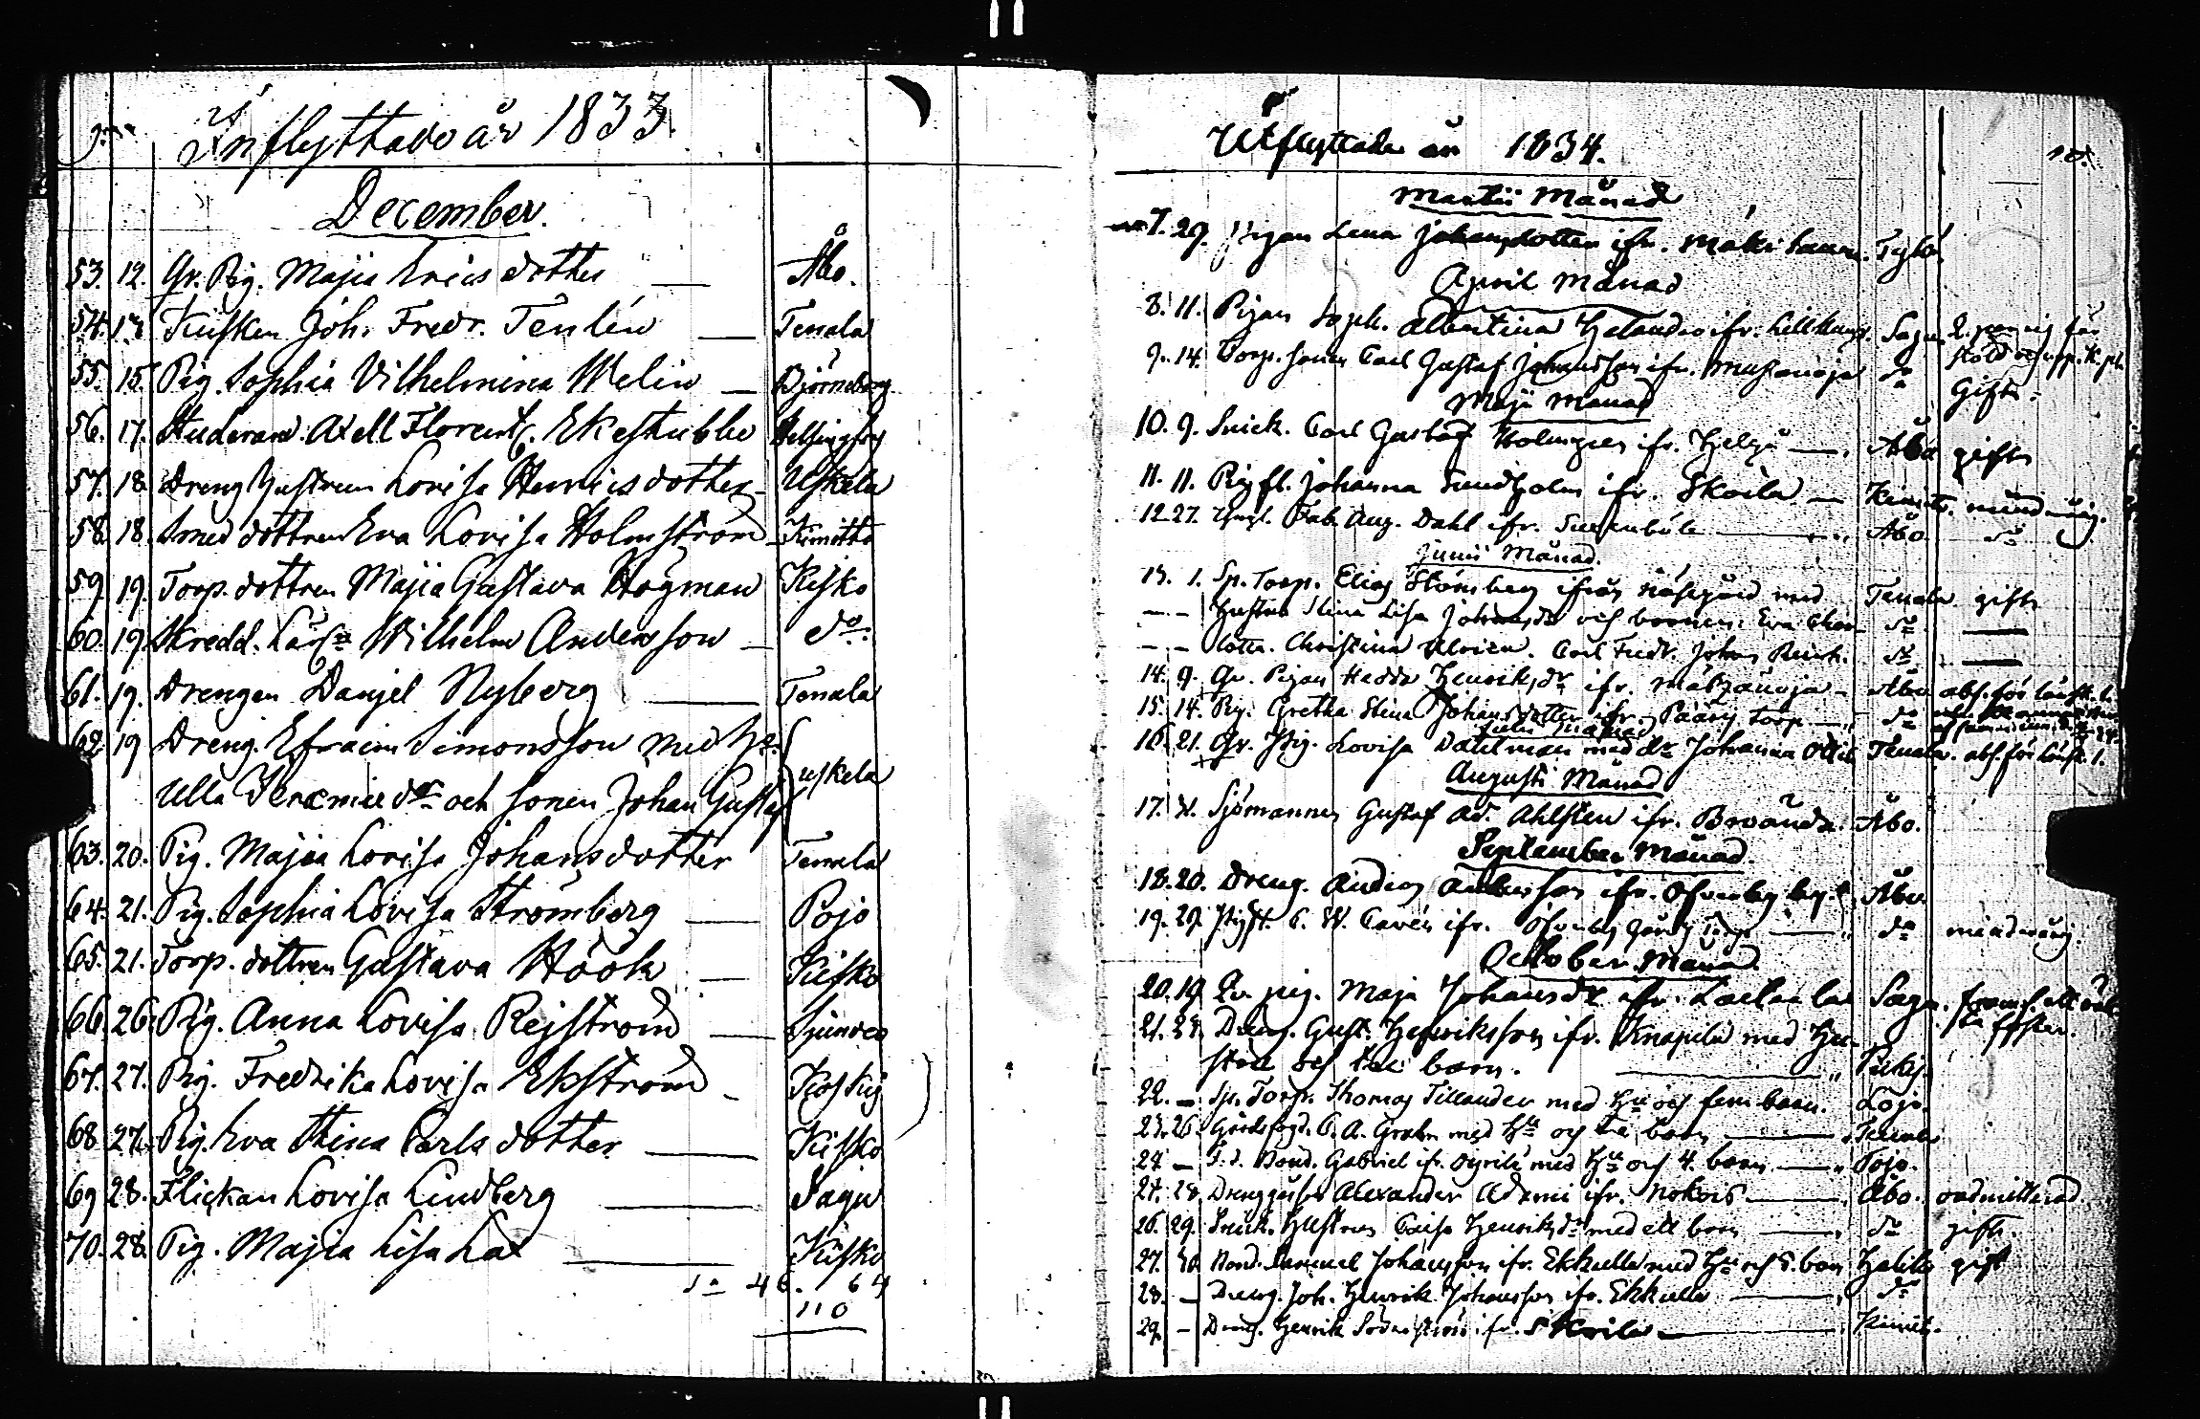 Inflyttade år 1833.
December.
53. 12. Qv. Pig. Majia Ericsdotter — Åbo.
54. 13 Kusken Joh. Fredr. Tenlén — Tenala
55. 15. Pig. Sophia Vilhelmina Welin — Björneborg
56. 17. Studerand. Axell Florent. Ekestubbe Helsingfors
57. 18. Dreng hustrun Lovisa Henricsdotter — Uskela
58. 18. Smed dottren Eva Lovisa Holmström — Kimitto
59. 19. Torp. dottren Majia Gustava Högman Kisko
60. 19. Skredd. Wilhelm Andersson — do:
61. 19. Drengen Danjel Nyberg — Tenala
62 19 Dreng. Efraim Simonsson med Hu.
Ulla Jeremiedr och sonen Johan Gustaf Uskela
63. 20. Pig. Majia Lovisa Johansdotter Tenala
64. 21. Pig. Sophia Lovisa Strömberg — Pojo
65. 21. Torp. dottren Gustava Höök — Kisko
66. 26. Pig. Anna Lovisa Rejström — Sjundeo
67. 27. Pig. Fredrika Lovisa Ekström — Koskij
68. 27. Pig. Eva Stina Carlsdotter — Kisko
69 28. Flickan Lovisa Lindberg — Sagu
70. 28. Pig. Majia Lisa Lax — Kisko
Sa 46. 64
110
Utflyttade år 1834. 10.
Martii Månad
7. 29. Pigan Lena Johansdotter ifr.
April Månad
8. 11. Pigan Soph. Albertina Helander ifr. Sagu
9. 14. Torp. sonen Carl Gustaf Johansson ifr. do Gift.
Maji Månad
10. 9. Snick. Carl Gustaf Holmgren ifr. Helgå — Åbo gift
11. 11. Pigfl. Johanna Sundholm ifr. Skoila — Kimito. mindreårig.
12. 27. Yngl. Fab. Aug. Dahl ifr. — Åbo do
Junii Månad.
13. 1. Sp. Torp. Elias Strömberg ifrån Näsegård med Tenala gift
— — Hustru Stina Lisa Johansdr och barnen: Eva do —
— — Lotta. Christina Ulrica. Carl Fredr. Johan do —
14. 9. Qv. Pigan Hedda Henriksdr ifr. — Åbo abs. för
15. 14. Pig. Gretha Stina Johansdotter ifr. Torp — do
Julii Månad
16. 21. Qv. Pig. Lovisa Dahlman med dr Johanna Tenala. abs. för
Augusti Månad
17. Sjömannen Gustaf Ad. Ahlsten ifr. Broånda. Åbo.
September Månad.
18. 20. Dreng. Anders Andersson ifr. Ofvenby Åbo
19. 29. C. W. Cavén ifr. Ofvenby — do mindreårig.
October Månad.
20. 19. Qv. pig. Maja Johansdr ifr. Sagu.
21. Dreng. Gust. Henriksson ifr. Knapila med Hu-
stru och barn. — Pikis.
22. — Sp. Torp. Thomas Tillander med Hu och fem barn. Lojo.
23. 26. Gårdsfogd. C. A. med Hu och barn — Tenala
24 — Bond. Gabriel ifr. med Hu och 4. barn — Pojo.
28. Alexander ifr. Nokois — Åbo.
26. 29. Snick. Hustrun Caisa Henriksdr med ett barn — do gift.
27. 30 Bond. Samuel Johansson ifr. Ekkulla med Hu och 5. barn Haliko gift
28. — Dreng. Joh. Henrik Johansson ifr. Ekkulla — do
29. — Dreng. Henrik Söderström ifr. Skoila — Kimito.